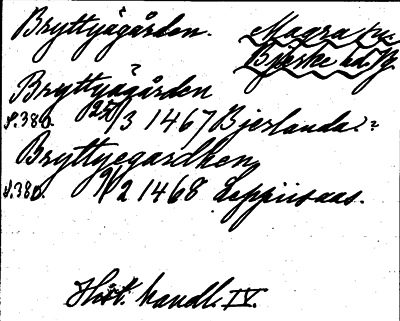 Bryttjågården. Magra sn.
Bjerke hd. Jb.
Bryttjågården
S. 380. 25/3 1467 Bjerlanda.?
Bryttyegardhen,
S. 380. 9/2 1468 Leppiisaas.
Hist. handl. IV.